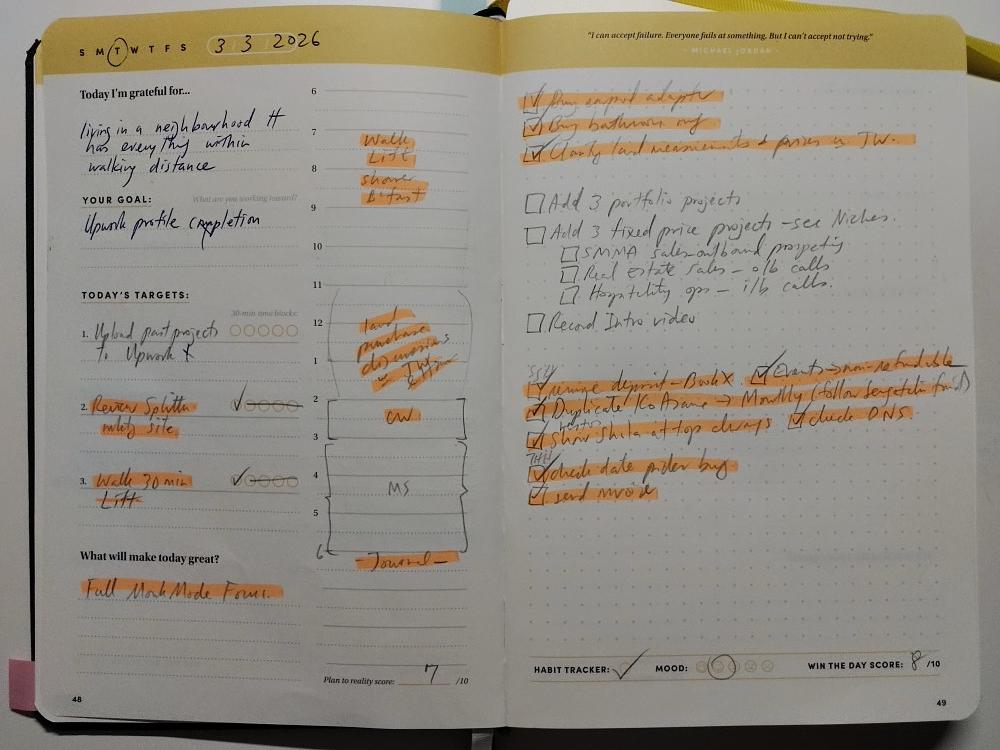 S M T W T F S 3 3 2026
Today I'm grateful for...
living in a neighbourhood tt
has everything within
walking distance
YOUR GOAL: What are you working toward?
Upwork profile completion
TODAY'S TARGETS:
30-min time blocks:
1. Upload past projects
To Upwork x
2. Review
site.
3. Walk 30 min
Lift
What will make today great?
Full Monk Mode Focus.
6
7
Walk
Lift
8
shower
B'fast
9
10
11
12
land
purchase
discussions
1
w JW
2
CW
3
4
MS
5
6
- Journal -
Plan to reality score: 7 /10
48
"I can accept failure. Everyone fails at something. But I can't accept not trying."
- MICHAEL JORDAN -
Buy adapter
Buy bathroom
Clarify land measurements + prices w JW.
Add 3 portfolio projects
Add 3 fixed price projects - see Niches.
SMMA sales outbound prospecting
Real Estate Sales - o/b calls
Hospitality ops - i/b calls.
Record Intro video
remove deposit - Book X Events → non-refundable
Duplicate Ko → Monthly (follow
Show Shila at top always check DNS.
check date picker bug
send invoice
HABIT TRACKER: MOOD: WIN THE DAY SCORE: 8 /10
49